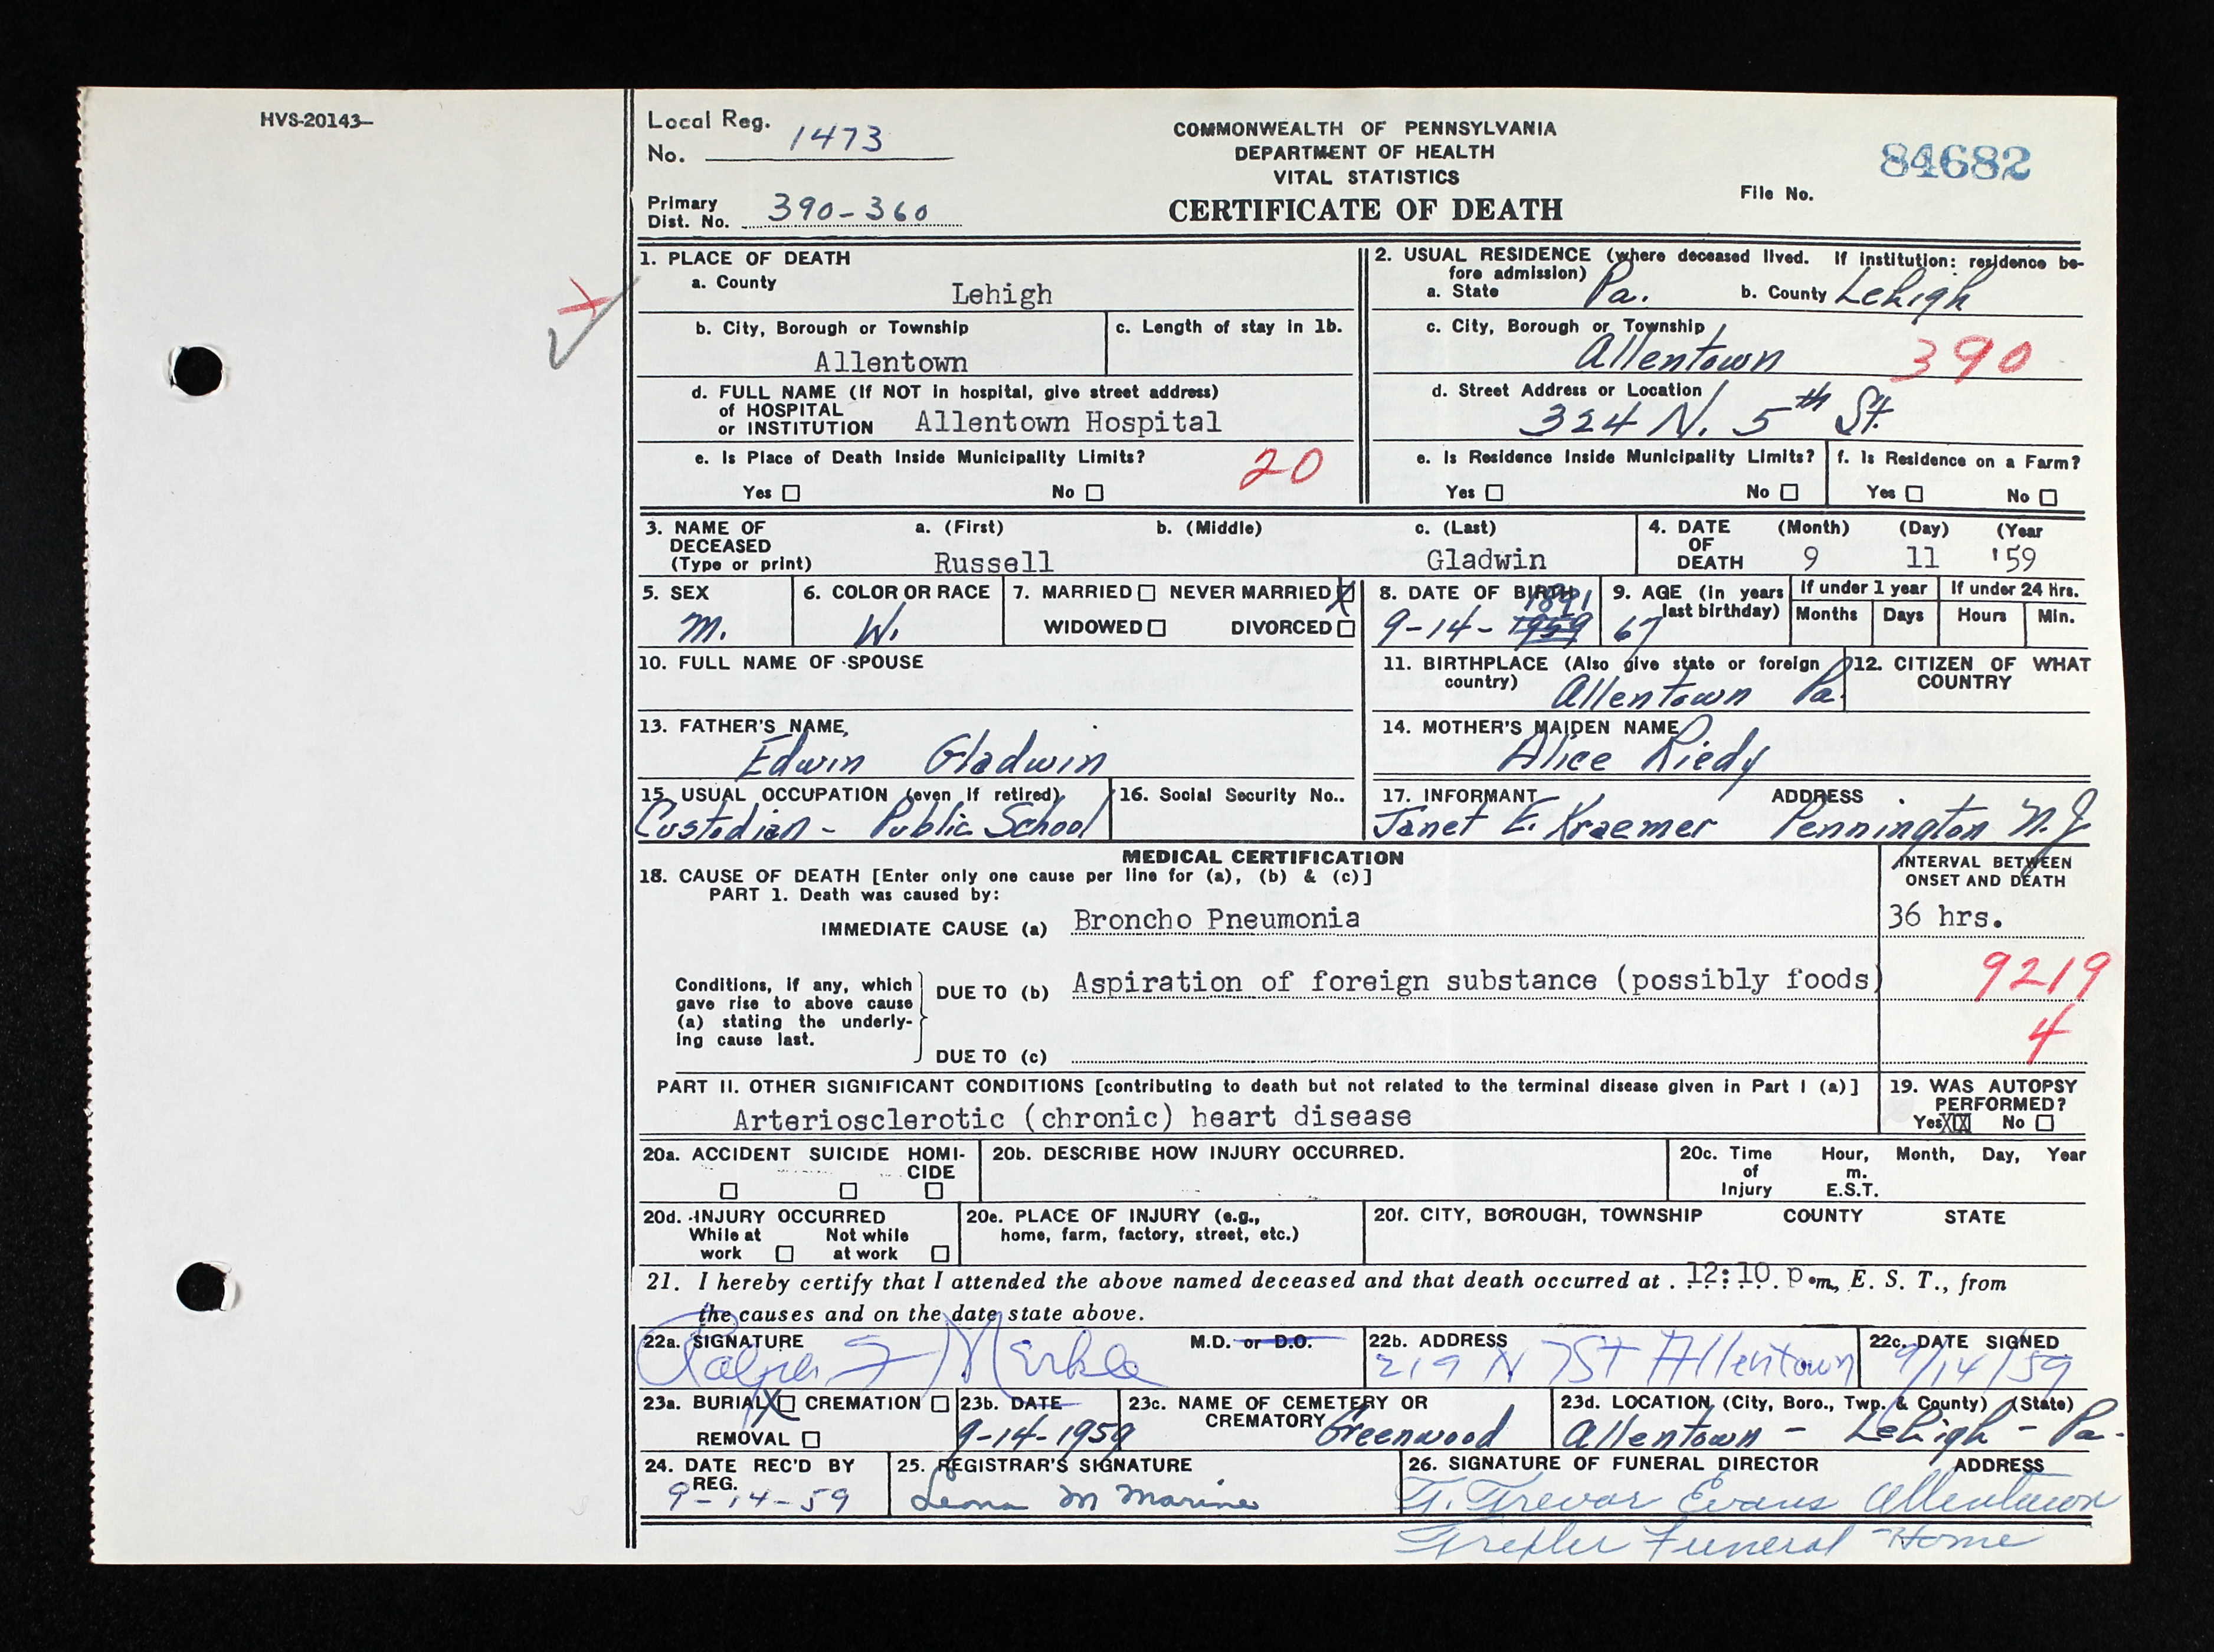 HVS-20143-
Local Reg.
No. 1473
Primary
Dist. No. 390-360
COMMONWEALTH OF PENNSYLVANIA
DEPARTMENT OF HEALTH
VITAL STATISTICS
CERTIFICATE OF DEATH
File No.
84682
1. PLACE OF DEATH
a. County
Lehigh
b. City, Borough or Township
Allentown
c. Length of stay in 1b.
d. FULL NAME (If NOT in hospital, give street address)
of HOSPITAL
or INSTITUTION Allentown Hospital
e. Is Place of Death Inside Municipality Limits? 20
Yes ☐ No ☐
2. USUAL RESIDENCE (where deceased lived. If institution: residence be-
fore admission)
a. State Pa. b. County Lehigh
c. City, Borough or Township
Allentown 390
d. Street Address or Location
324 N. 5th St.
e. Is Residence Inside Municipality Limits?
Yes ☐ No ☐
f. Is Residence on a Farm?
Yes ☐ No ☐
3. NAME OF
DECEASED
(Type or print)
a. (First) b. (Middle) c. (Last)
Russell Gladwin
4. DATE
OF
DEATH
(Month) (Day) (Year
9 11 '59
5. SEX
M.
6. COLOR OR RACE
W.
7. MARRIED ☐ NEVER MARRIED ☒
WIDOWED ☐ DIVORCED ☐
8. DATE OF BIRTH
1891
9-14-1959
9. AGE (in years
last birthday)
67
If under 1 year
Months Days
If under 24 hrs.
Hours Min.
10. FULL NAME OF SPOUSE
11. BIRTHPLACE (Also give state or foreign
country)
Allentown Pa.
12. CITIZEN OF WHAT
COUNTRY
13. FATHER'S NAME,
Edwin Gladwin
14. MOTHER'S MAIDEN NAME
Alice Riedy
15. USUAL OCCUPATION (even if retired)
Custodian - Public School
16. Social Security No..
17. INFORMANT ADDRESS
Janet E. Kraemer Pennington N.J.
MEDICAL CERTIFICATION
18. CAUSE OF DEATH [Enter only one cause per line for (a), (b) & (c)]
PART 1. Death was caused by:
IMMEDIATE CAUSE (a) Broncho Pneumonia
INTERVAL BETWEEN
ONSET AND DEATH
36 hrs.
Conditions, if any, which
gave rise to above cause
(a) stating the underly-
ing cause last.
DUE TO (b) Aspiration of foreign substance (possibly foods)
9219
4
DUE TO (c)
PART II. OTHER SIGNIFICANT CONDITIONS [contributing to death but not related to the terminal disease given in Part I (a)]
Arteriosclerotic (chronic) heart disease
19. WAS AUTOPSY
PERFORMED?
Yes ☒ No ☐
20a. ACCIDENT SUICIDE HOMI-
CIDE
☐ ☐ ☐
20b. DESCRIBE HOW INJURY OCCURRED.
20c. Time
of
Injury
Hour, Month, Day, Year
m.
E.S.T.
20d. INJURY OCCURRED
While at Not while
work ☐ at work ☐
20e. PLACE OF INJURY (e.g.,
home, farm, factory, street, etc.)
20f. CITY, BOROUGH, TOWNSHIP COUNTY STATE
21. I hereby certify that I attended the above named deceased and that death occurred at . 12:10. p.m., E. S. T., from
the causes and on the date state above.
22a. SIGNATURE M.D. or D.O.
Merkle
22b. ADDRESS
219 N 7 ST Allentown
22c. DATE SIGNED
9/14/59
23a. BURIAL ☒ CREMATION ☐
REMOVAL ☐
23b. DATE
9-14-1959
23c. NAME OF CEMETERY OR
CREMATORY Greenwood
23d. LOCATION (City, Boro., Twp. & County) (State)
Allentown - Lehigh - Pa.
24. DATE REC'D BY
REG.
9-14-59
25. REGISTRAR'S SIGNATURE
Leona M
26. SIGNATURE OF FUNERAL DIRECTOR ADDRESS
Trevor Evans Allentown
Trexler Funeral Home